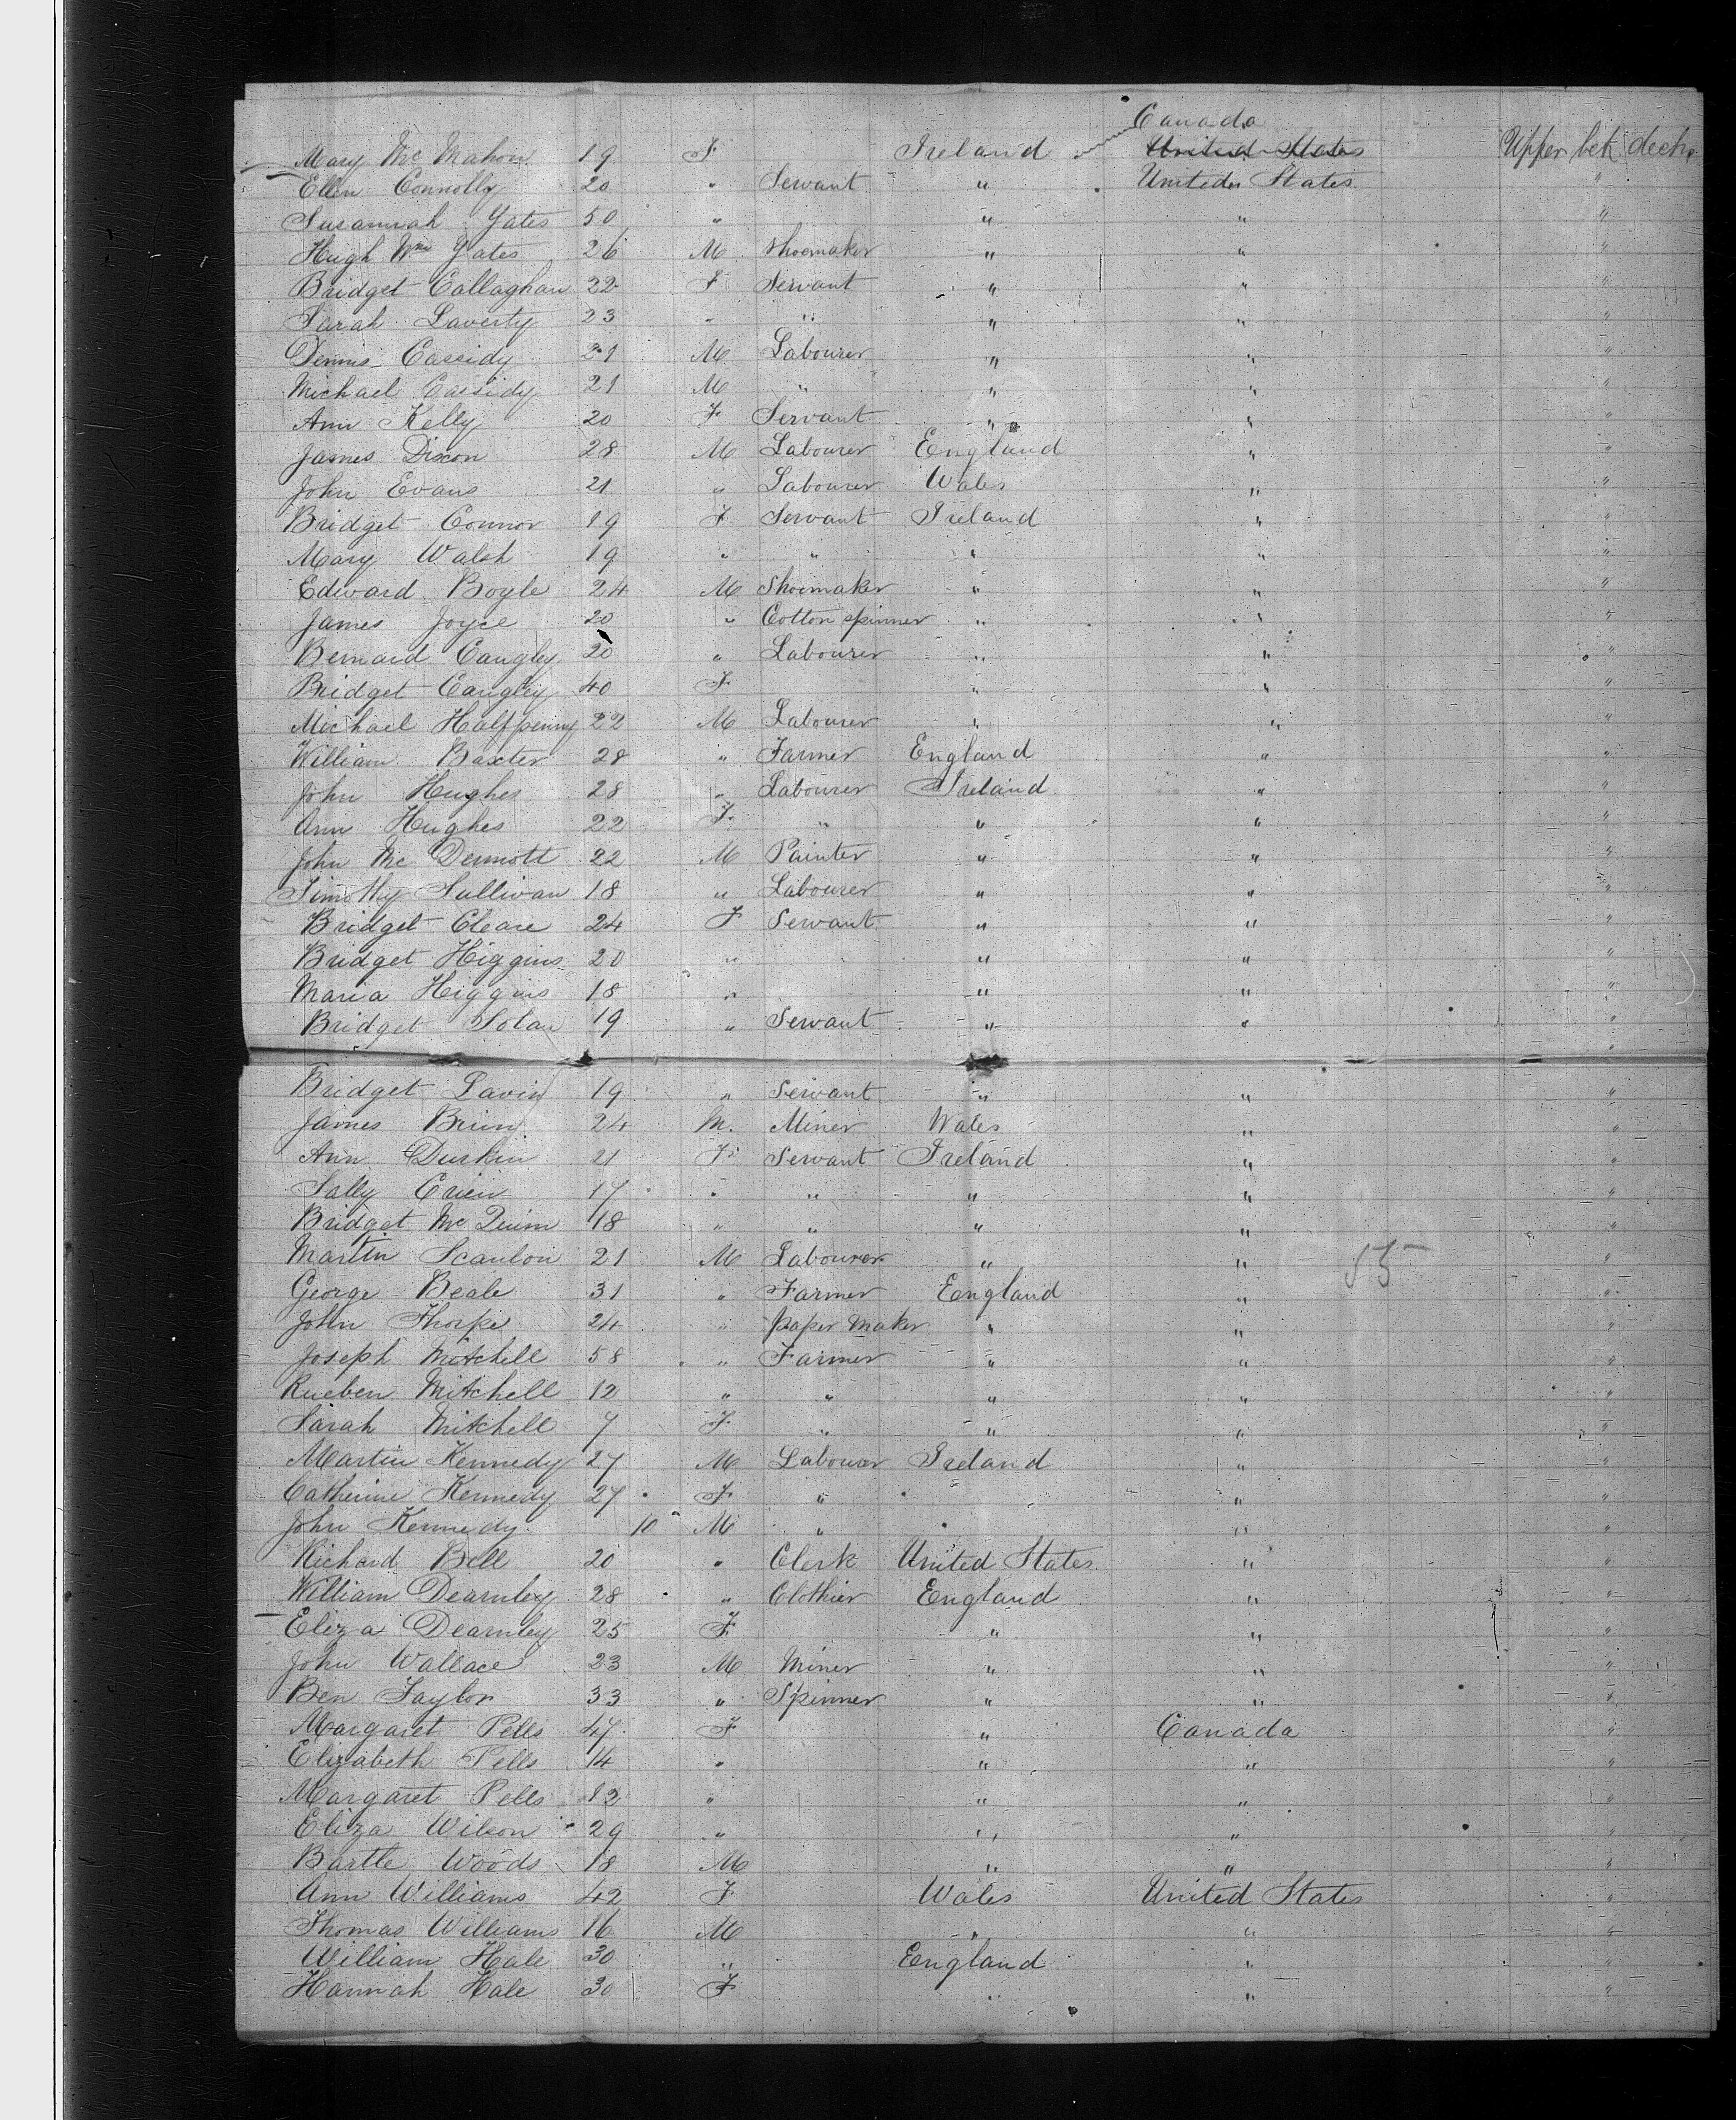 Canada
Mary McMahon 19 F Ireland United States Upper bet. decks
Ellen Connolly 20 " Servant " United States "
Susannah Yates 50 " " " "
Hugh Wm Yates 26 M Shoemaker " " "
Bridget Callaghan 22 F Servant " " "
Sarah Laverty 23 " " " " "
Dennis Cassidy 21 M Labourer " " "
Michael Cassidy 21 M " " " "
Ann Kelly 20 F Servant " " "
James Dixon 28 M Labourer England " "
John Evans 21 " Labourer Wales " "
Bridget Connor 19 F Servant Ireland " "
Mary Walsh 19 " " " " "
Edward Boyle 24 M Shoemaker " " "
James Joyce 20 " Cotton spinner " " "
Bernard Cangley 20 " Labourer " " "
Bridget Cangley 40 F " " "
Michael Halfpenny 22 M Labourer " " "
William Baxter 28 " Farmer England " "
John Hughes 28 " Labourer Ireland " "
Ann Hughes 22 F " " " "
John McDermott 22 M Painter " " "
Timothy Sullivan 18 " Labourer " " "
Bridget Cleare 24 F Servant " " "
Bridget Higgins 20 " " " "
Maria Higgins 18 " " " "
Bridget Solan 19 " Servant " " "
"
Bridget Lavin 19 " Servant " " "
James Brim 24 M. Miner Wales " "
Ann Durkin 21 F. Servant Ireland " "
Sally 17 " " " " "
Bridget McQuinn 18 " " " " "
Martin Scanlon 21 M Labourer " " "
George Beale 31 " Farmer England " "
John Thorpe 24 " paper maker " " "
Joseph Mitchell 58 " Farmer " " "
Rueben Mitchell 12 " " " " "
Sarah Mitchell 7 F " " " "
Martin Kennedy 27 M Labourer Ireland " "
Catherine Kennedy 27 F " " " "
John Kennedy 10 M " " " "
Richard Bell 20 " Clerk United States " "
William Dearnley 28 " Clothier England " "
Eliza Dearnley 25 F " " "
John Wallace 23 M Miner " " "
Ben Taylor 33 " Spinner " " "
Margaret Pells 47 F " Canada "
Elizabeth Pells 14 " " " "
Margaret Pells 12 " " " "
Eliza Wilson 29 " " " "
Bartle Woods 18 M " " "
Ann Williams 42 F Wales United States "
Thomas Williams 16 M " " "
William Hale 30 " England " "
Hannah Hale 30 F " " "